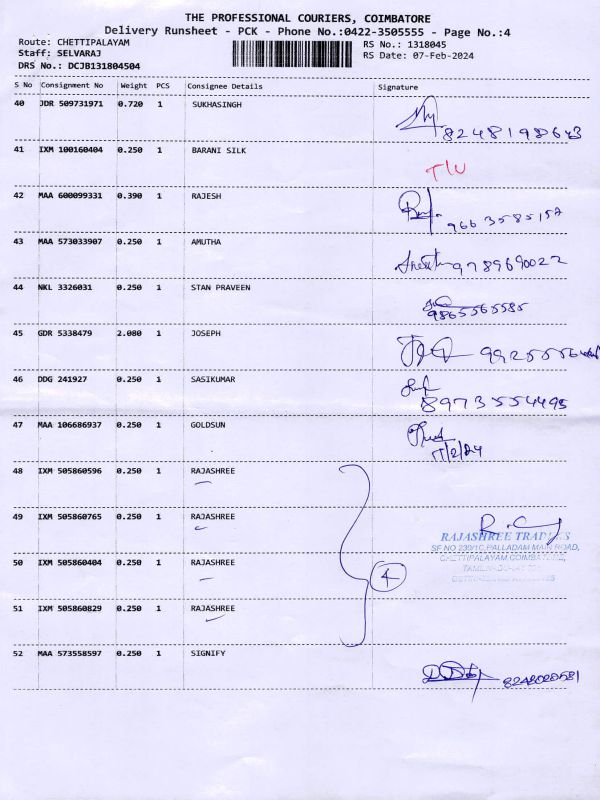 THE PROFESSIONAL COURIERS, COIMBATORE
Delivery Runsheet - PCK - Phone No.:0422-3505555 - Page No.:4
Route: CHETTIPALAYAM
Staff: SELVARAJ
DRS No.: DCJB131804504
RS No.: 1318045
RS Date: 07-Feb-2024
S No Consignment No Weight PCS Consignee Details Signature
40 JDR 509731971 0.720 1 SUKHASINGH
41 IXM 100160404 0.250 1 BARANI SILK T/U
42 MAA 600099331 0.390 1 RAJESH
43 MAA 573033907 0.250 1 AMUTHA 9789690022
44 NKL 3326031 0.250 1 STAN PRAVEEN
9865565585
45 GDR 5338479 2.080 1 JOSEPH
46 DDG 241927 0.250 1 SASIKUMAR
8973554495
47 MAA 106686937 0.250 1 GOLDSUN
48 IXM 505860596 0.250 1 RAJASHREE
49 IXM 505860765 0.250 1 RAJASHREE
RAJASHREE TRADERS
SF NO 239/1C, PALLADAM MAIN ROAD,
CHETTIPALAYAM, COIMBATORE,
50 IXM 505860404 0.250 1 RAJASHREE 4
51 IXM 505860829 0.250 1 RAJASHREE
52 MAA 573558597 0.250 1 SIGNIFY